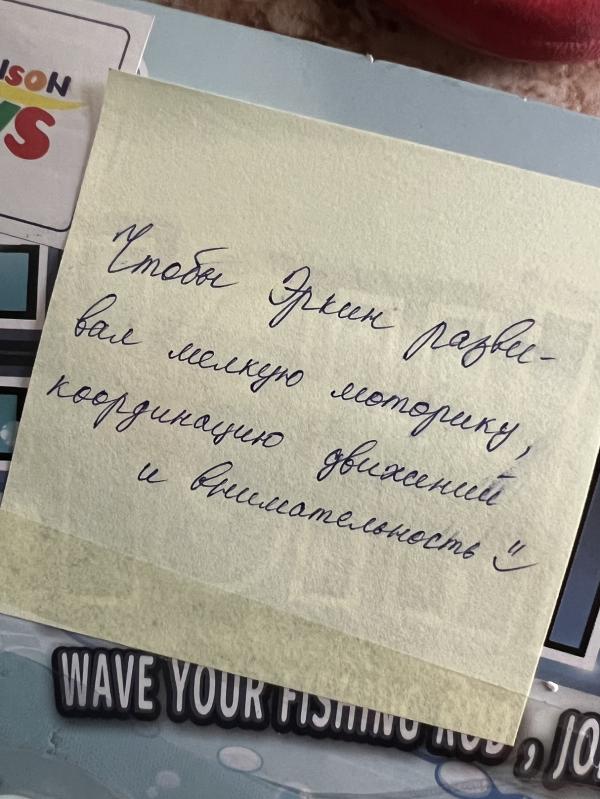 NSON
YS
Чтобы Эркин разви-
вал мелкую моторику,
координацию движений
и внимательность
WAVE YOUR FISHING ROD, JO